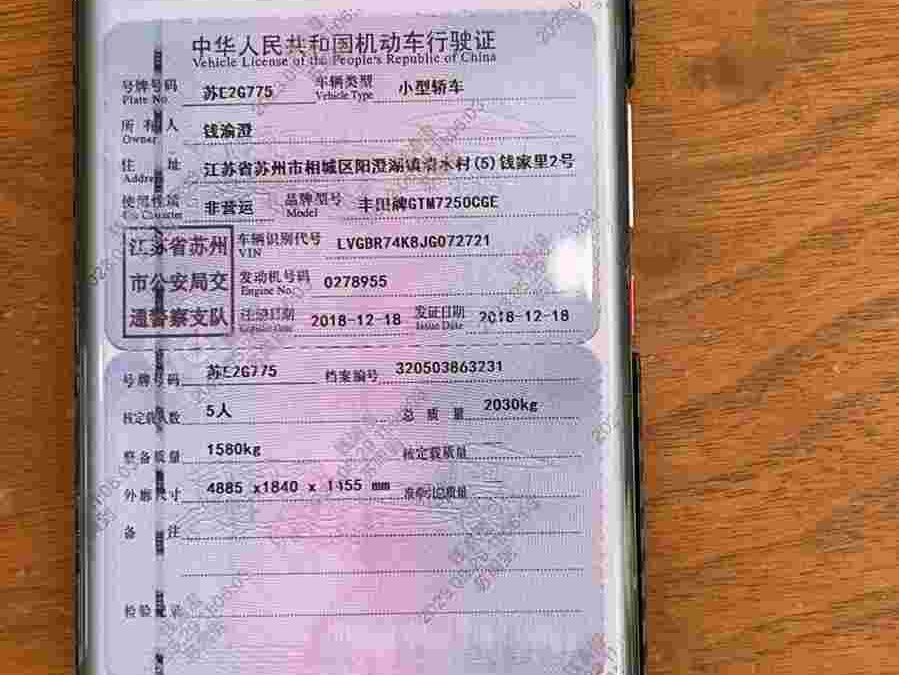 中华人民共和国机动车行驶证
Vehicle License of the People's Republic of China
号牌号码 苏E2G775 车辆类型 小型轿车
Plate No. Vehicle Type
所有人 钱渝澄
Owner
住址 江苏省苏州市相城区阳澄湖镇清水村(5)钱家里2号
Address
使用性质 非营运 品牌型号 丰田牌GTM7250CGE
Use Character Model
江苏省苏州 车辆识别代号 LVGBR74K8JG072721
VIN
市公安局交 发动机号码 0278955
Engine No.
通警察支队 注册日期 2018-12-18 发证日期 2018-12-18
Register Date Issue Date
号牌号码 苏E2G775 档案编号 320503863231
核定载人数 5人 总质量 2030kg
整备质量 1580kg 核定载质量
外廓尺寸 4885 x1840 x 1455 mm 准牵引总质量
备注
检验记录